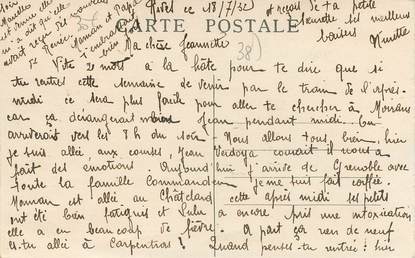 Rives ce 18/7/32
CARTE POSTALE
Ma chère Jeannette
Vite 2 mots à la hâte pour te dire que si
tu rentres cette semaine de venir par le train de l'après-
midi ce sera plus facile pour aller te chercher à Moirans
car ça dérangerait moins Jean pendant midi. On
arriverait vers les 7h du soir
Nous allons tous bien, hier
je suis allée aux courses, Jean Verdoya courait il nous a
fait des émotions. Aujourd'hui j'arrive de Grenoble avec
toute la famille Commandeur je me suis fait coiffée.
Maman est allée au Châtelard cette après midi les petits
ont été bien fatigués et Lulu a encore pris une intoxication
elle a eu beaucoup de fièvre. A part ça rien de neuf
es-tu allée à Carpentras? Quand penses-tu rentrée: hier
avait reçu des nouvelles
de Renée. Maman et Papa
et reçois de ta petite
sœurette ses meilleurs
baisers